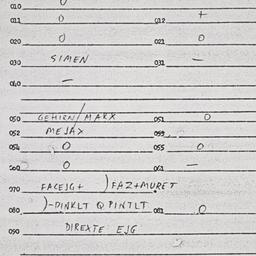 010 0
011 0 012 +
020 0 021 0
030 SIMEN 031 —
040 —
050 GEHIRN/MARX 051 0
052 MEJAX
054 0 055 0
060 0 061 —
070 FACEJG+ )FAZ+MURET
080 )-DINKLT Q PINTLT 081 0
090 DIREXTE EJG